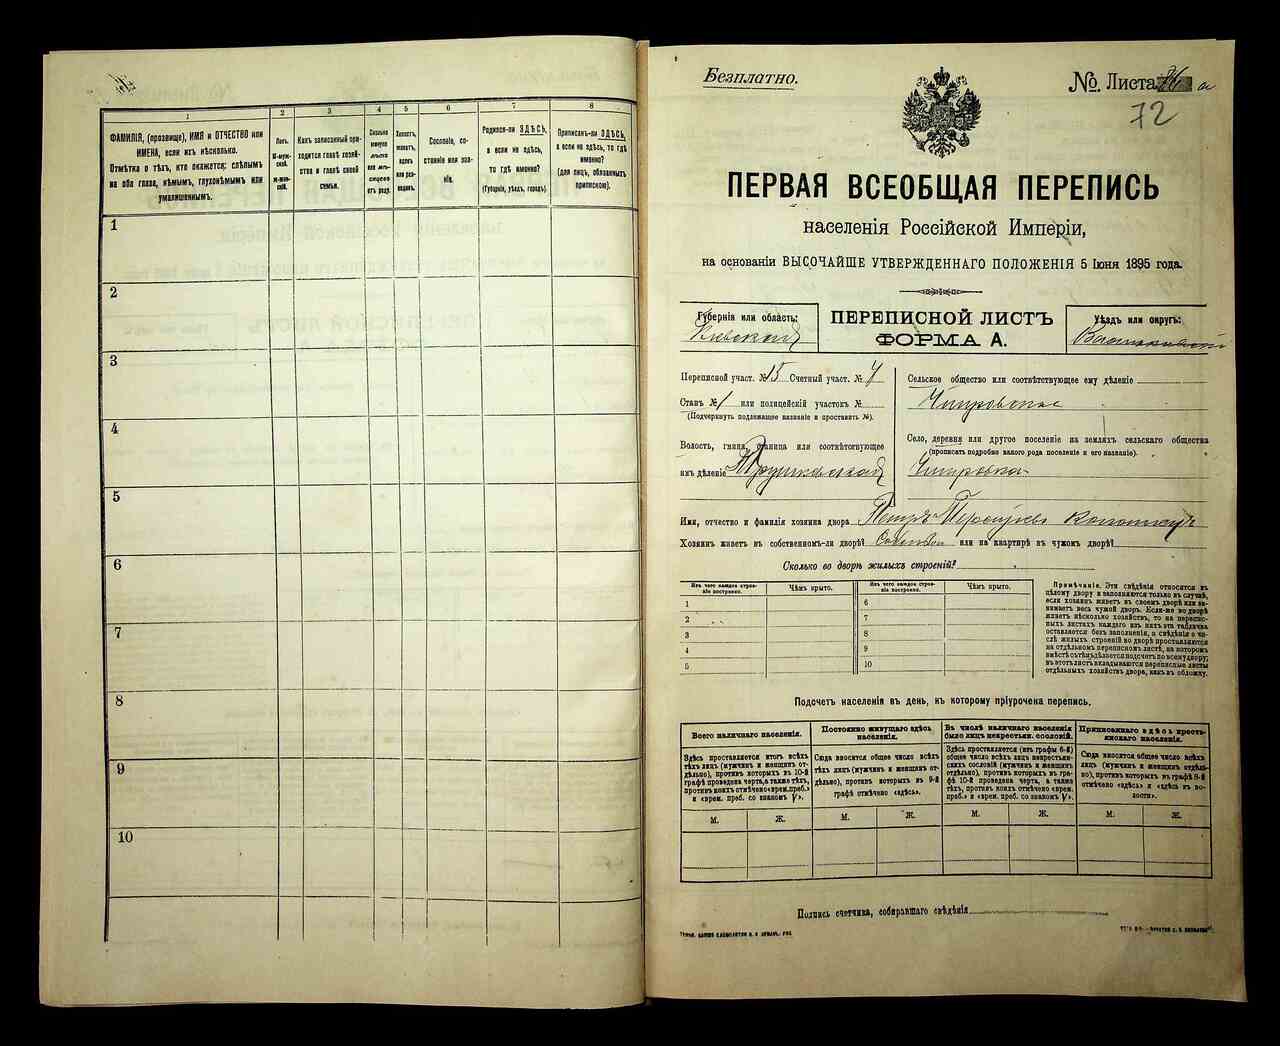 1
2
3
4
5
6
7
8
ФАМИЛІЯ, (прозвище), ИМЯ и ОТЧЕСТВО или
ИМЕНА, если ихъ нѣсколько.
Отмѣтка о тѣхъ, кто окажется: слѣпымъ
на оба глаза, нѣмымъ, глухонѣмымъ или
умалишеннымъ.
Полъ.
М-муж-
ской.
ж-жен-
скій.
Какъ записанный при-
ходится главѣ хозяй-
ства и главѣ своей
семьи.
Сколько
минуло
лѣтъ
или мѣ-
сяцевъ
отъ роду.
Холостъ,
женатъ,
вдовъ
или раз-
веденъ.
Сословіе, со-
стояніе или зва-
ніе.
Родился-ли ЗДѢСЬ,
а если не здѣсь,
то гдѣ именно?
(Губернія, уѣздъ, городъ).
Приписанъ-ли ЗДѢСЬ,
а если не здѣсь, то гдѣ
именно?
(для лицъ, обязанныхъ
припискою).
1
2
3
4
5
6
7
8
9
10
Безплатно.
№. Листа а
72
ПЕРВАЯ ВСЕОБЩАЯ ПЕРЕПИСЬ
населенія Россійской Имперіи,
на основаніи ВЫСОЧАЙШЕ УТВЕРЖДЕННАГО ПОЛОЖЕНІЯ 5 Іюня 1895 года.
Губернія или область:
Кіевская
ПЕРЕПИСНОЙ ЛИСТЪ
ФОРМА А.
Уѣздъ или округъ:
Васильковскій
Переписной участ. № 15 Счетный участ. № 7
Станъ № 1 или полицейскій участокъ №
(Подчеркнуть подлежащее названіе и проставить №).
Волость, гмина, станица или соотвѣтствующее
имъ дѣленіе
Сельское общество или соотвѣтствующее ему дѣленіе
Село, деревня или другое поселеніе на земляхъ сельскаго общества
(прописать подробно какого рода поселеніе и его названіе).
Имя, отчество и фамилія хозяина двора Петръ
Хозяинъ живетъ въ собственномъ-ли дворѣ? или на квартирѣ въ чужомъ дворѣ?
Сколько во дворѣ жилыхъ строеній?
Изъ чего каждое строе-
ніе построено.
Чѣмъ крыто.
Изъ чего каждое строе-
ніе построено.
Чѣмъ крыто.
1
2
3
4
5
6
7
8
9
10
Примѣчаніе. Эти свѣдѣнія относятся къ
цѣлому двору и заполняются только въ случаѣ,
если хозяинъ живетъ въ своемъ дворѣ или за-
нимаетъ весь чужой дворъ. Если-же во дворѣ
живетъ нѣсколько хозяйствъ, то на перепис-
ныхъ листахъ каждаго изъ нихъ эта табличка
оставляется безъ заполненія, а свѣдѣнія о чи-
слѣ жилыхъ строеній во дворѣ проставляются
на отдѣльномъ переписномъ листѣ, на которомъ
вмѣстѣ съ тѣмъ дѣлается подсчетъ по всему двору;
въ этотъ листъ вкладываются переписные листы
отдѣльныхъ хозяйствъ двора, какъ въ обложку.
Подсчетъ населенія въ день, къ которому пріурочена перепись.
Всего наличнаго населенія.
Постоянно живущаго здѣсь
населенія.
Въ числѣ наличнаго населенія
было лицъ некрестьян. сословій.
Приписаннаго здѣсь кресть-
янскаго населенія.
Здѣсь проставляется итогъ всѣхъ
тѣхъ лицъ (мужчинъ и женщинъ от-
дѣльно), противъ которыхъ въ 10-й
графѣ проведена черта, а также тѣхъ,
противъ коихъ отмѣчено «врем. преб.»
и «врем. преб. со знакомъ V».
Сюда вносится общее число всѣхъ
тѣхъ лицъ (мужчинъ и женщинъ от-
дѣльно), противъ которыхъ въ 9-й
графѣ отмѣчено «здѣсь».
Здѣсь проставляется (изъ графы 6-й)
общее число всѣхъ лицъ некрестьян-
скихъ сословій (мужчинъ и женщинъ
отдѣльно), противъ которыхъ въ гра-
фѣ 10-й проведена черта, а также
тѣхъ, противъ коихъ отмѣчено «врем.
преб.» и «врем. преб. со знакомъ V».
Сюда вносится общее число всѣхъ
лицъ (мужчинъ и женщинъ отдѣль-
но), противъ которыхъ въ графѣ 8-й
отмѣчено «здѣсь» и «здѣсь въ во-
лости».
М.
Ж.
М.
Ж.
М.
Ж.
М.
Ж.
Подпись счетчика, собиравшаго свѣдѣнія